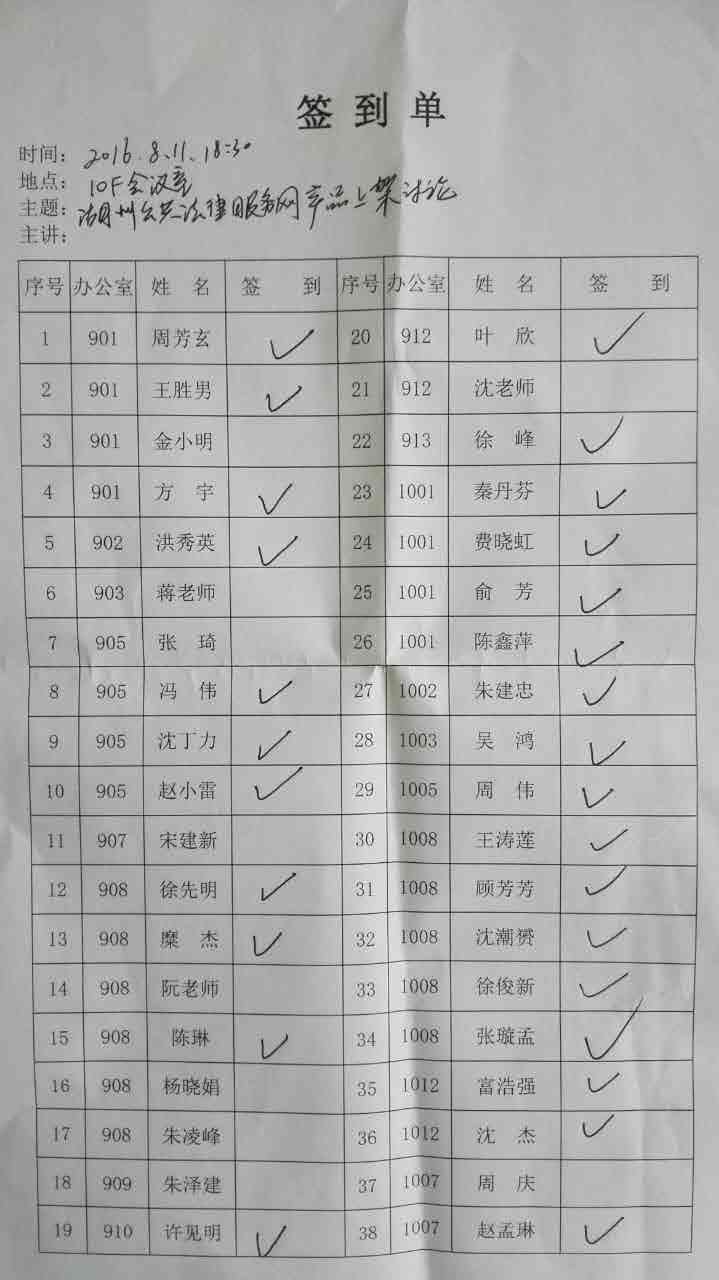 签到单
时间：2016.8.11.18:30
地点：10F会议室
主题：湖州公共法律服务网产品上架讨论
主讲：
序号 办公室 姓名 签到 序号 办公室 姓名 签到
1 901 周芳玄 ✓ 20 912 叶欣 ✓
2 901 王胜男 ✓ 21 912 沈老师
3 901 金小明 22 913 徐峰 ✓
4 901 方宇 ✓ 23 1001 秦丹芬 ✓
5 902 洪秀英 ✓ 24 1001 费晓虹 ✓
6 903 蒋老师 25 1001 俞芳 ✓
7 905 张琦 26 1001 陈鑫萍 ✓
8 905 冯伟 ✓ 27 1002 朱建忠 ✓
9 905 沈丁力 ✓ 28 1003 吴鸿 ✓
10 905 赵小雷 ✓ 29 1005 周伟 ✓
11 907 宋建新 30 1008 王涛莲 ✓
12 908 徐先明 ✓ 31 1008 顾芳芳 ✓
13 908 糜杰 ✓ 32 1008 沈潮赟 ✓
14 908 阮老师 33 1008 徐俊新 ✓
15 908 陈琳 ✓ 34 1008 张璇孟 ✓
16 908 杨晓娟 35 1012 富浩强 ✓
17 908 朱凌峰 36 1012 沈杰 ✓
18 909 朱泽建 37 1007 周庆
19 910 许见明 ✓ 38 1007 赵孟琳 ✓